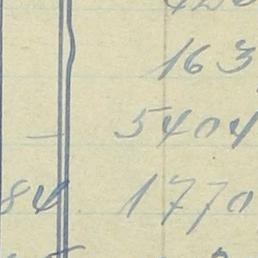 163
5404
84 1770